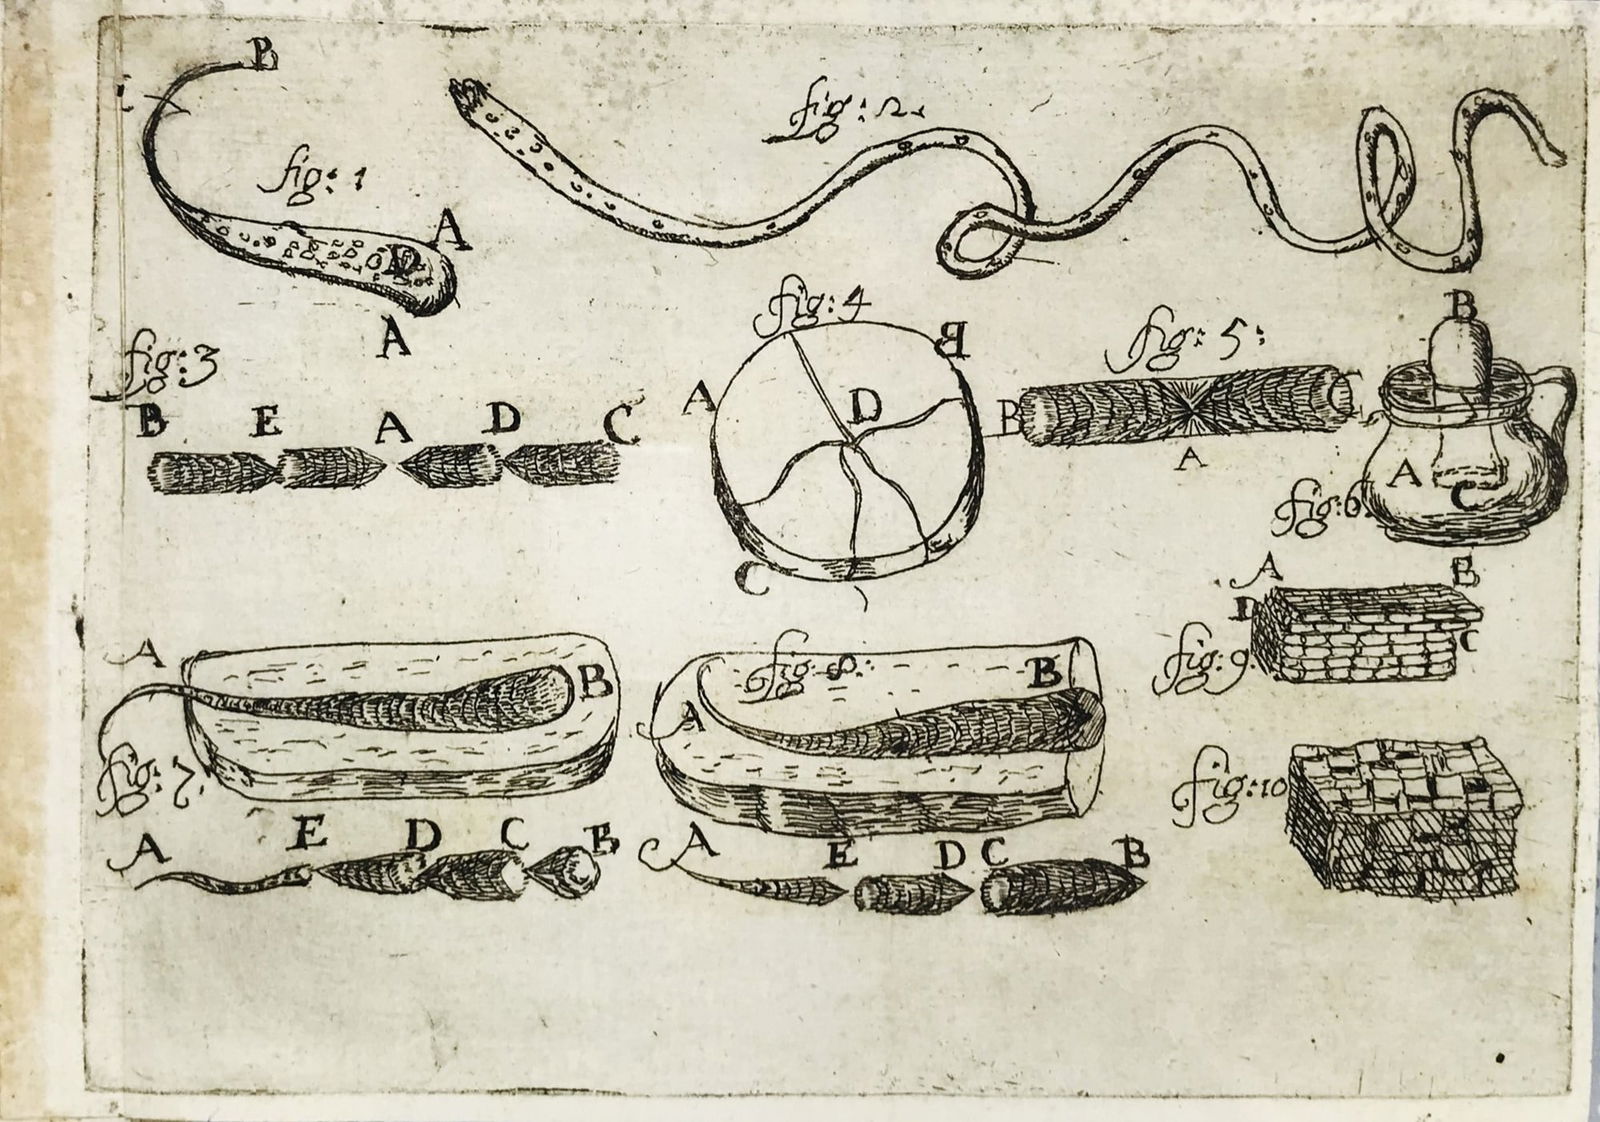 B
fig: 1
A
D
A
fig: 2.
fig: 3
B E A D C
fig: 4
A
B
D
C
fig: 5:
B
A
C
B
A
C
fig: 6
A
B
B
fig: 7.
A E D C B
fig. 8:
A
B
A E D C B
A
D
C
fig: 9
fig: 10